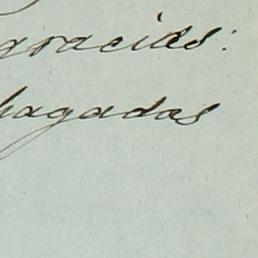 gracias:
hagadas